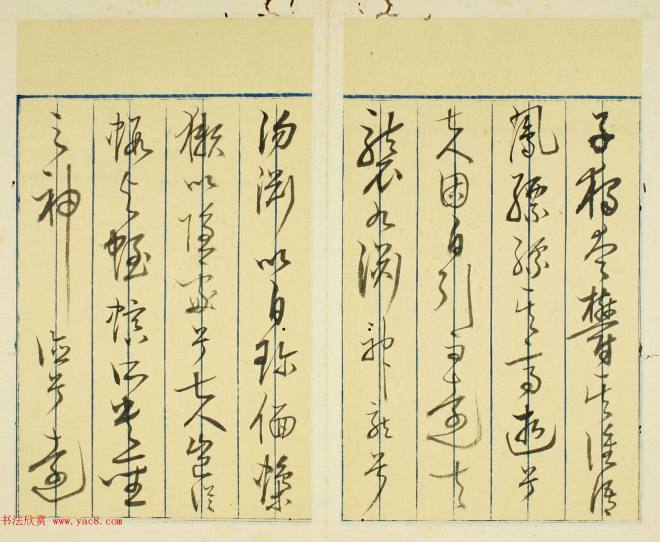 子獨壹鬱其誰語
鳳縹縹其高逝兮
夫固自引而遠去
襲九淵神龍兮
沕淵以自珍偭蟂
獺以隱處兮夫豈從
蝦與蛭螾所貴聖
之神德兮遠
书法欣赏 www.yac8.com